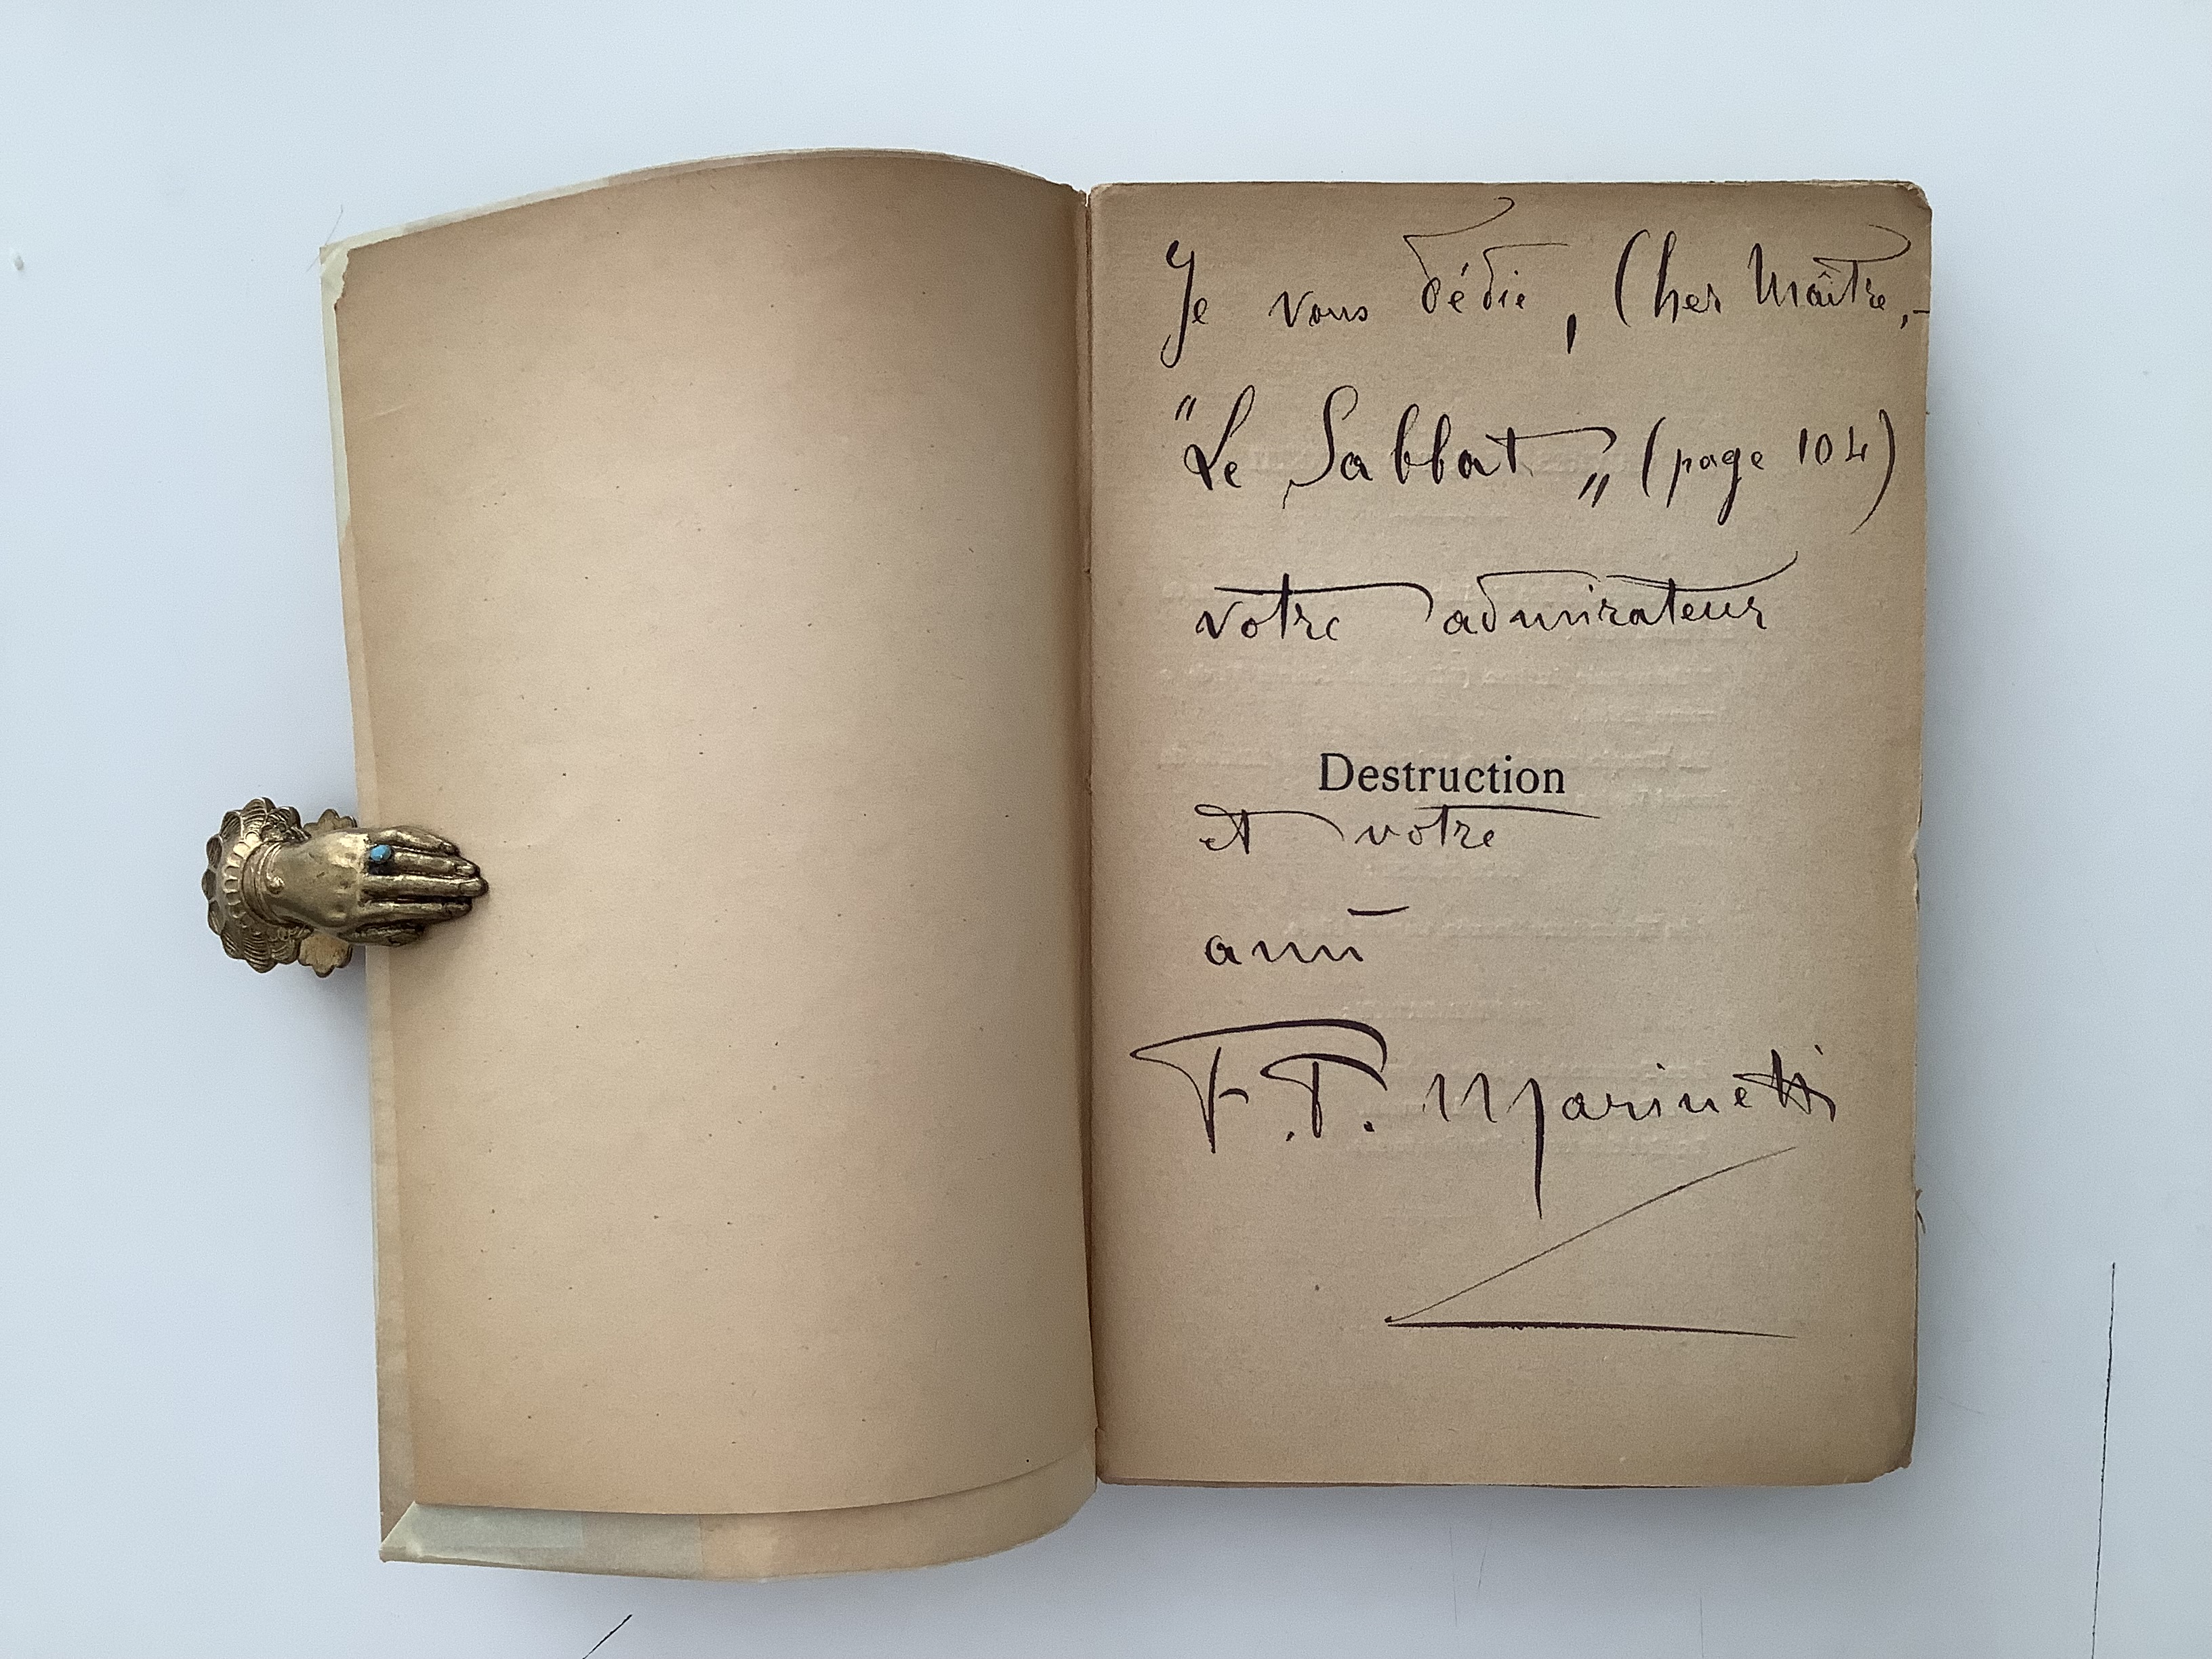 Je vous dédie, Cher Maître,-
"Le Sabbat„ (page 104)
votre admirateur
Destruction
et votre
ami
F.T. Marinetti